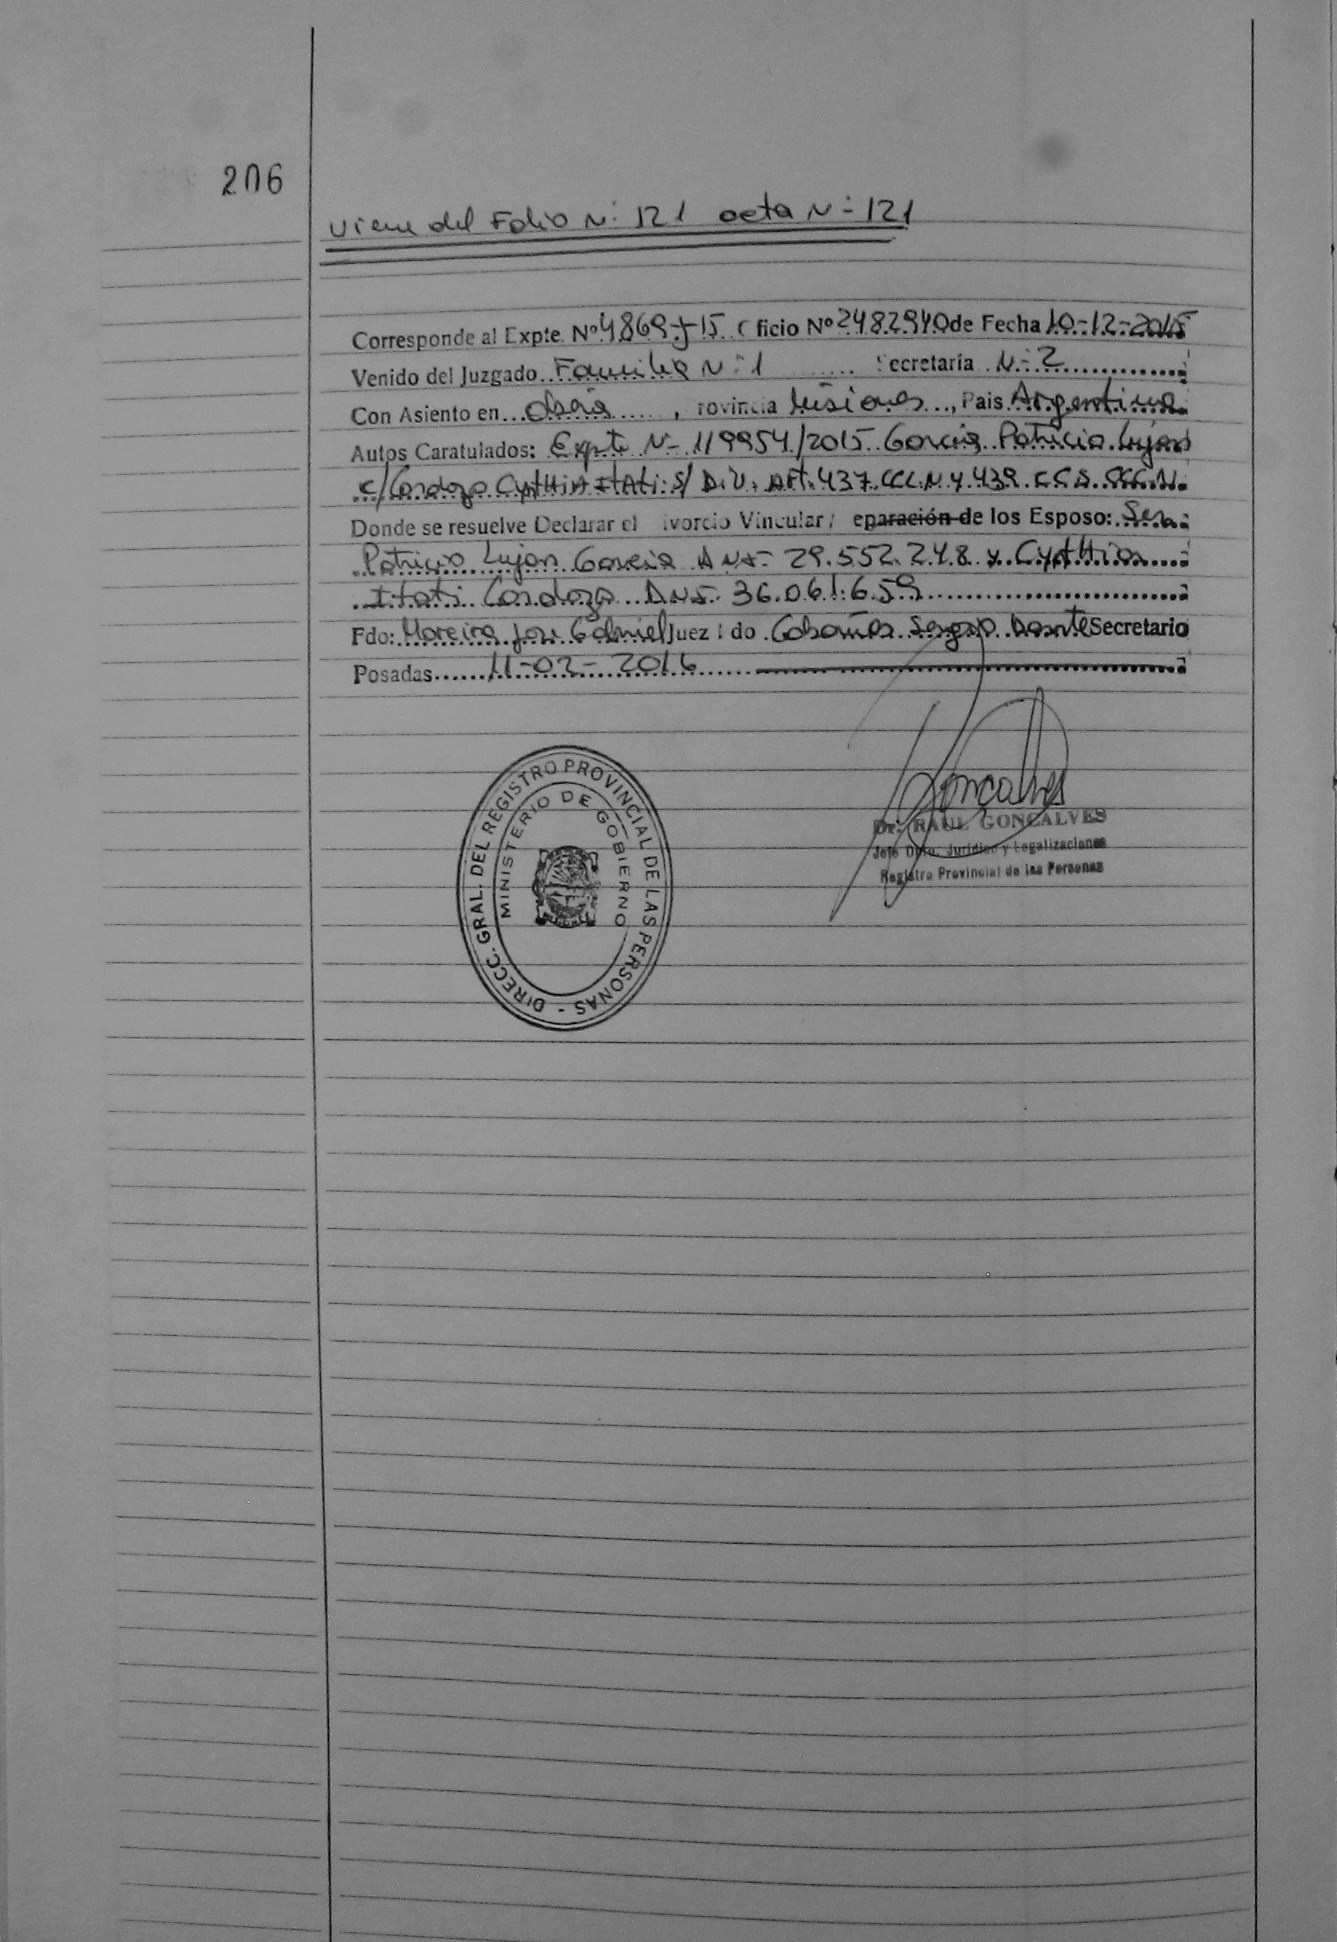 206
Viene del Folio N: 121 acta N- 121
Corresponde al Expte. Nº 4869-J-15 ficio Nº 2482940 de Fecha 10-12-2015
Venido del Juzgado Familia N: 1 ecretaría N- 2
Con Asiento en Oberá, rovincia Misiones, País Argentina
Autos Caratulados: Expte N- 119954/2015 Garcia Patricio Lujan
c/ Cardozo Cynthia Itati S/ Div. Art. 437 CCC.N y 439
Donde se resuelve Declarar el ivorcio Vincular/ eparación de los Esposo:
Patricio Lujan Garcia DNI- 29.552.248 y Cynthia
Itati Cardozo DNI- 36.061.659
Fdo: Moreira Jose Gabriel Juez do Cabañas Sergio Dante Secretario
Posadas 11-02-2016
Goncalves
Dr. RAUL GONCALVES
Jefe Dpto. Jurídico y Legalizaciones
Registro Provincial de las Personas
DIRECC. GRAL. DEL REGISTRO PROVINCIAL DE LAS PERSONAS -
MINISTERIO DE GOBIERNO